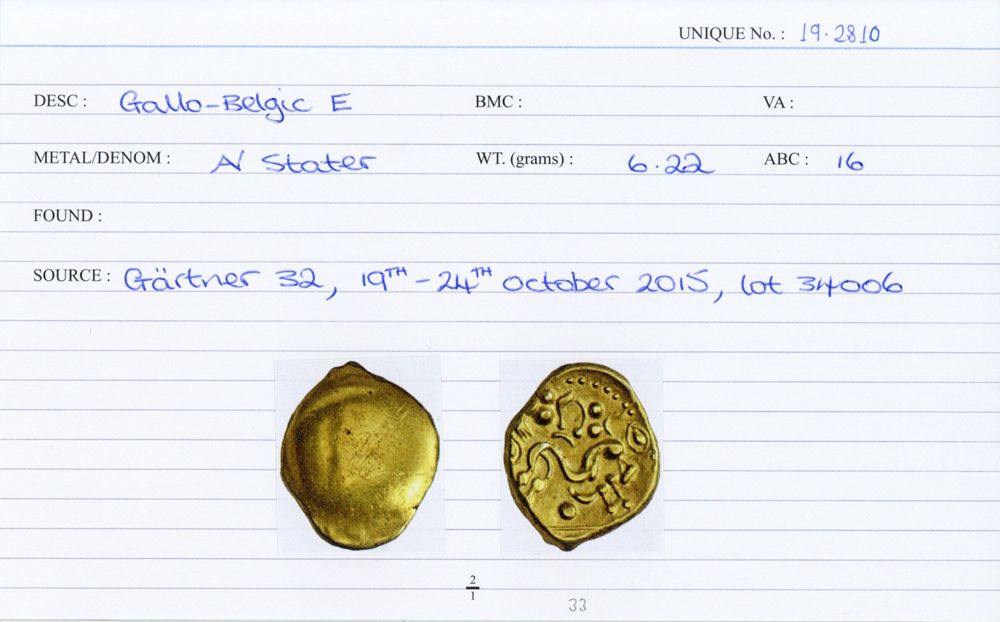 UNIQUE No. : 19.2810
DESC : Gallo-Belgic E BMC : VA :
METAL/DENOM : AV Stater WT. (grams) : 6.22 ABC : 16
FOUND :
SOURCE : Gärtner 32, 19TH - 24TH October 2015, lot 34006
2
1
33